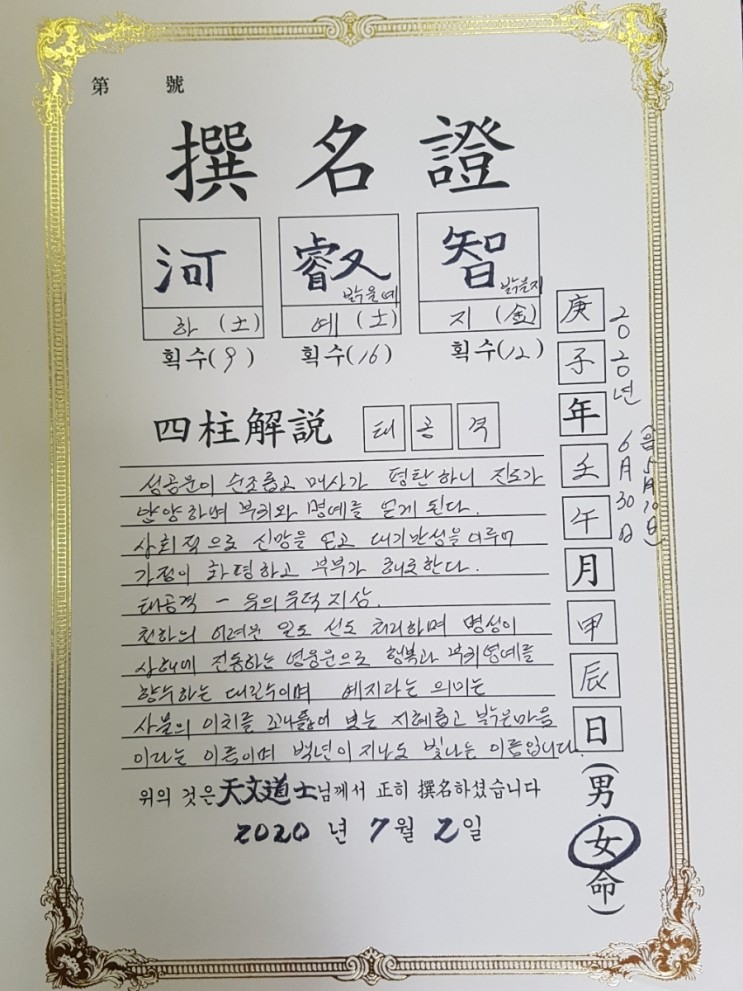 第 號
撰名證
河 叡 智
밝을예 밝을지
하 (土) 예 (土) 지 (金)
획수(9) 획수(16) 획수(12)
四柱解説 태 공 격
성공운이 순조롭고 매사가 평탄하니 진로가
양양하며 부귀와 명예를 얻게 된다.
사회적으로 신망을 얻고 대기만성을 이루며
가정이 화평하고 부부가 해로한다.
태공격 - 유의유덕지상.
천하의 어려운 일도 선도 처리하며 명성이
사해에 진동하는 영웅운으로 행복과 부귀영예를
향수하는 대길수이며 예지라는 의미는
사물의 이치를 꿰뚫어 보는 지혜롭고 밝은마음
이라는 이름이며 백년이 지나도 빛나는 이름입니다.
위의 것은 天文道士님께서 正히 撰名하셨습니다
2020 년 7월 2일
庚子年壬午月甲辰日(男.女命)
2020년 6月30日
(음5月10日)